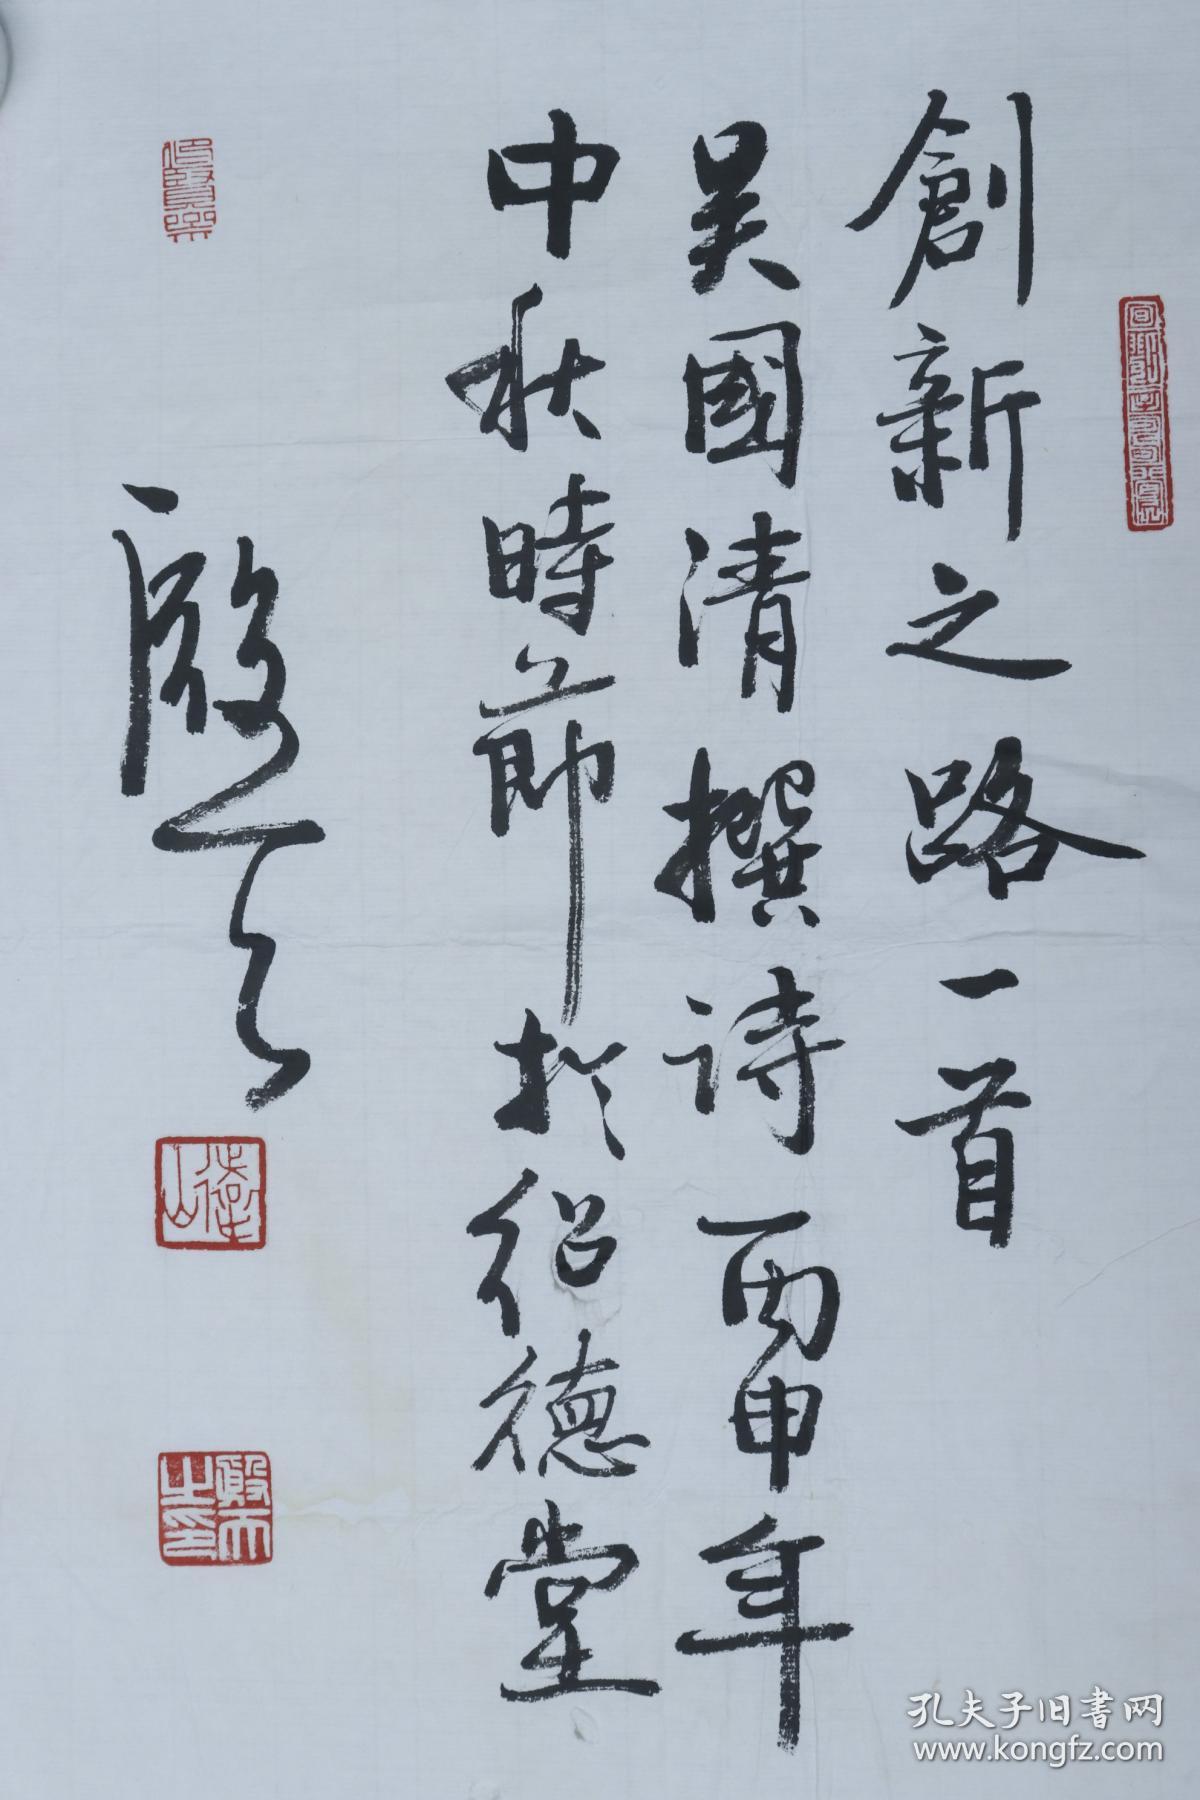 創新之路一首
吴國清撰诗丙申年
中秋時節於绍德堂
殷天
殷天之印
孔夫子旧书网
www.kongfz.com